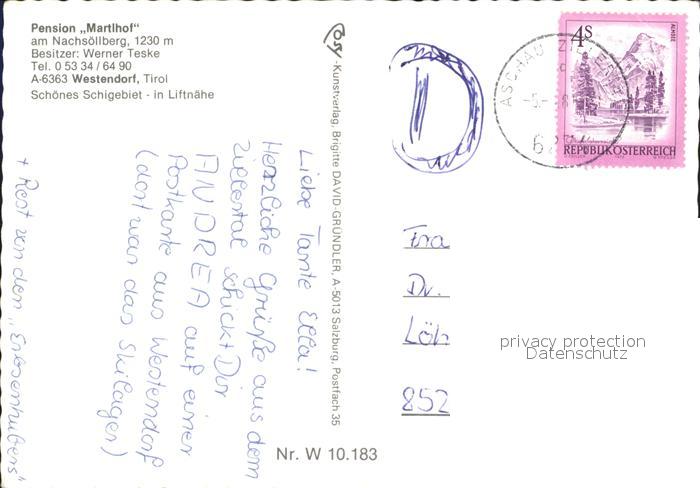 Pension „Martlhof"
am Nachsöllberg, 1230 m
Besitzer: Werner Teske
Tel. 0 53 34 / 64 90
A-6363 Westendorf, Tirol
Schönes Schigebiet - in Liftnähe
Kunstverlag, Brigitte DAVID-GRÜNDLER, A-5013 Salzburg, Postfach 35
Liebe Tante Ella!
Herzliche Grüße aus dem
Zillertal schickt Dir
ANDREA auf einer
Postkarte aus Westendorf
(dort war das Skilager)
+ Rest von den
D
ASCHAU ZILLER
4S
ALMSEE
REPUBLIK ÖSTERREICH
Fra
Dr.
Löh
852
privacy protection
Datenschutz
Nr. W 10.183